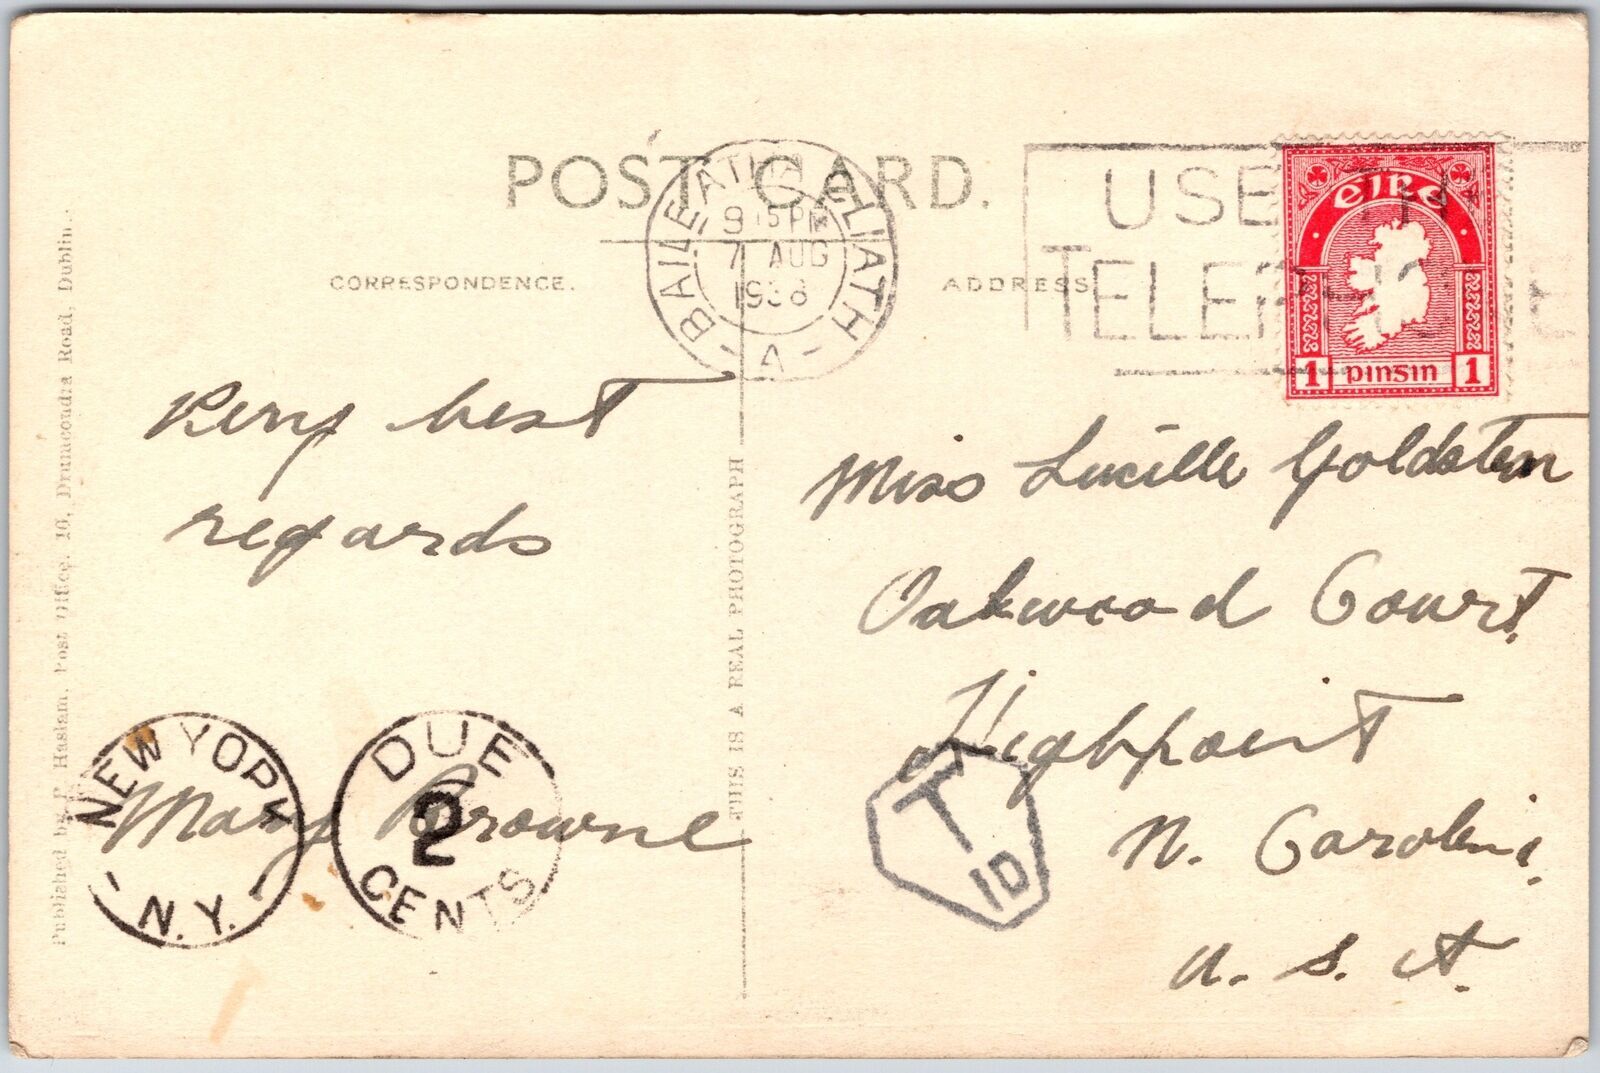 POST CARD.
CORRESPONDENCE.
ADDRESS
BAILE ATHA CLIATH
9 15 PM
7 AUG
1938
V
USE THE
TELEPHONE
EIRE
1 pinsin 1
Very best
regards
Mary Browne
Miss Lucille Goldstein
Oakwood Court.
Highpoint
N. Carolina.
U. S. A.
NEW YORK
N.Y.
DUE
2
CENTS
T
1D
THIS IS A REAL PHOTOGRAPH
Published by P. Haslam. Post Office. 16, Drumcondra Road, Dublin.